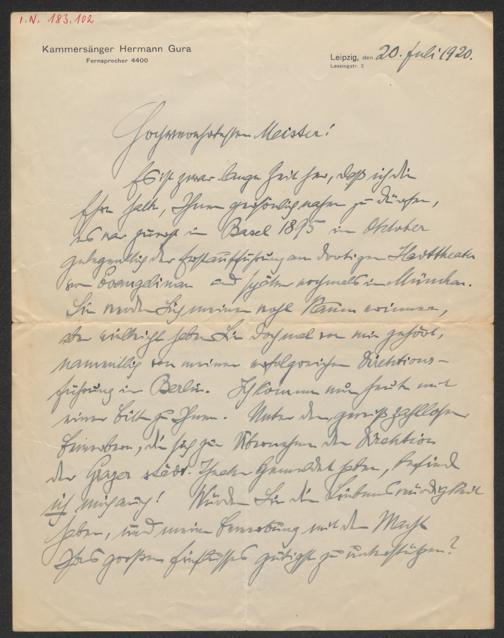 I.N. 183.102
Kammersänger Hermann Gura
Fernsprecher 4400
Leipzig, den 20. Juli 1920.
Lessingstr. 2
Hochverehrtester Meister!
Es ist zwar lange Zeit her, daß ich die
Ehre hatte, Ihnen persönlich nahen zu dürfen,
es war zuerst in Basel 1895 im Oktober
gelegentlich der Erstaufführung am dortigen Stadttheater
von Evangelimann und später nochmals in München.
Sie werden sich meiner wohl kaum erinnern,
aber vielleicht haben Sie doch mal von mir gehört,
namentlich von meiner erfolgreichen Direktions-
führung in Berlin. Ich komme nun heute mit
einer Bitte zu Ihnen. Unter den gewiß zahllosen
Bewerbern, die sich zur Übernahme der Direktion
der Grazer städt. Theater gemeldet haben, befinde
ich mich auch! Würden Sie die Liebenswürdigkeit
haben, und meine Bewerbung mit der Macht
Ihres großen Einflusses gütigst zu unterstützen?